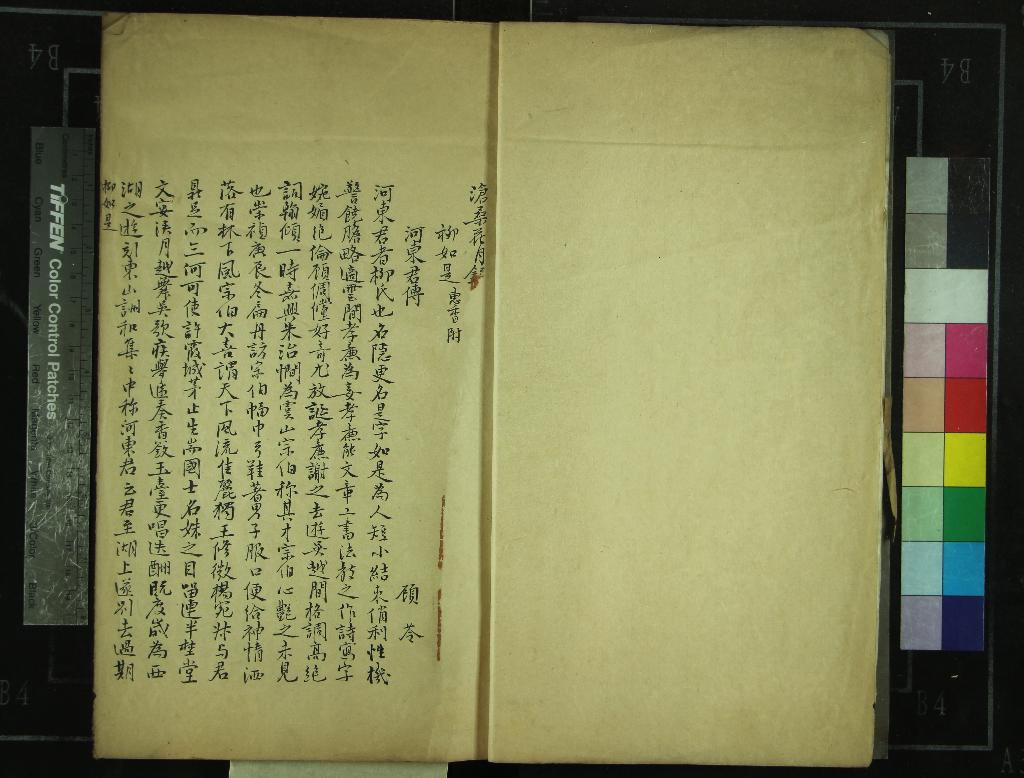 滄桑花月錄
柳如是 惠香附
河東君傳
顧苓
河東君者柳氏也名隱更名是字如是為人短小結束俏利性機
警饒膽略適雲間孝廉為妾孝廉能文章工書法教之作詩寫字
婉媚絕倫顧倜儻好奇尤放誕孝廉謝之去遊吳越間格調高絕
詞翰傾一時嘉興朱治憪為虞山宗伯稱其才宗伯心豔之未見
也崇禎庚辰冬扁舟訪宗伯幅巾弓鞋著男子服口便給神情洒
落有林下風宗伯大喜謂天下風流佳麗獨王修微楊宛叔与君
鼎足而三何可使許霞城茅止生耑國士名姝之目留連半野堂
文宴浹月越舞吳歌族舉遞奏香奩玉臺更唱迭酬既度歲為西
湖之遊刻東山詶和集〻中称河東君云君至湖上遂別去過期
柳如是
TIFFEN Color Control Patches
Blue
Cyan
Green
Yellow
Red
Magenta
Black
B4
B4
B4
B4